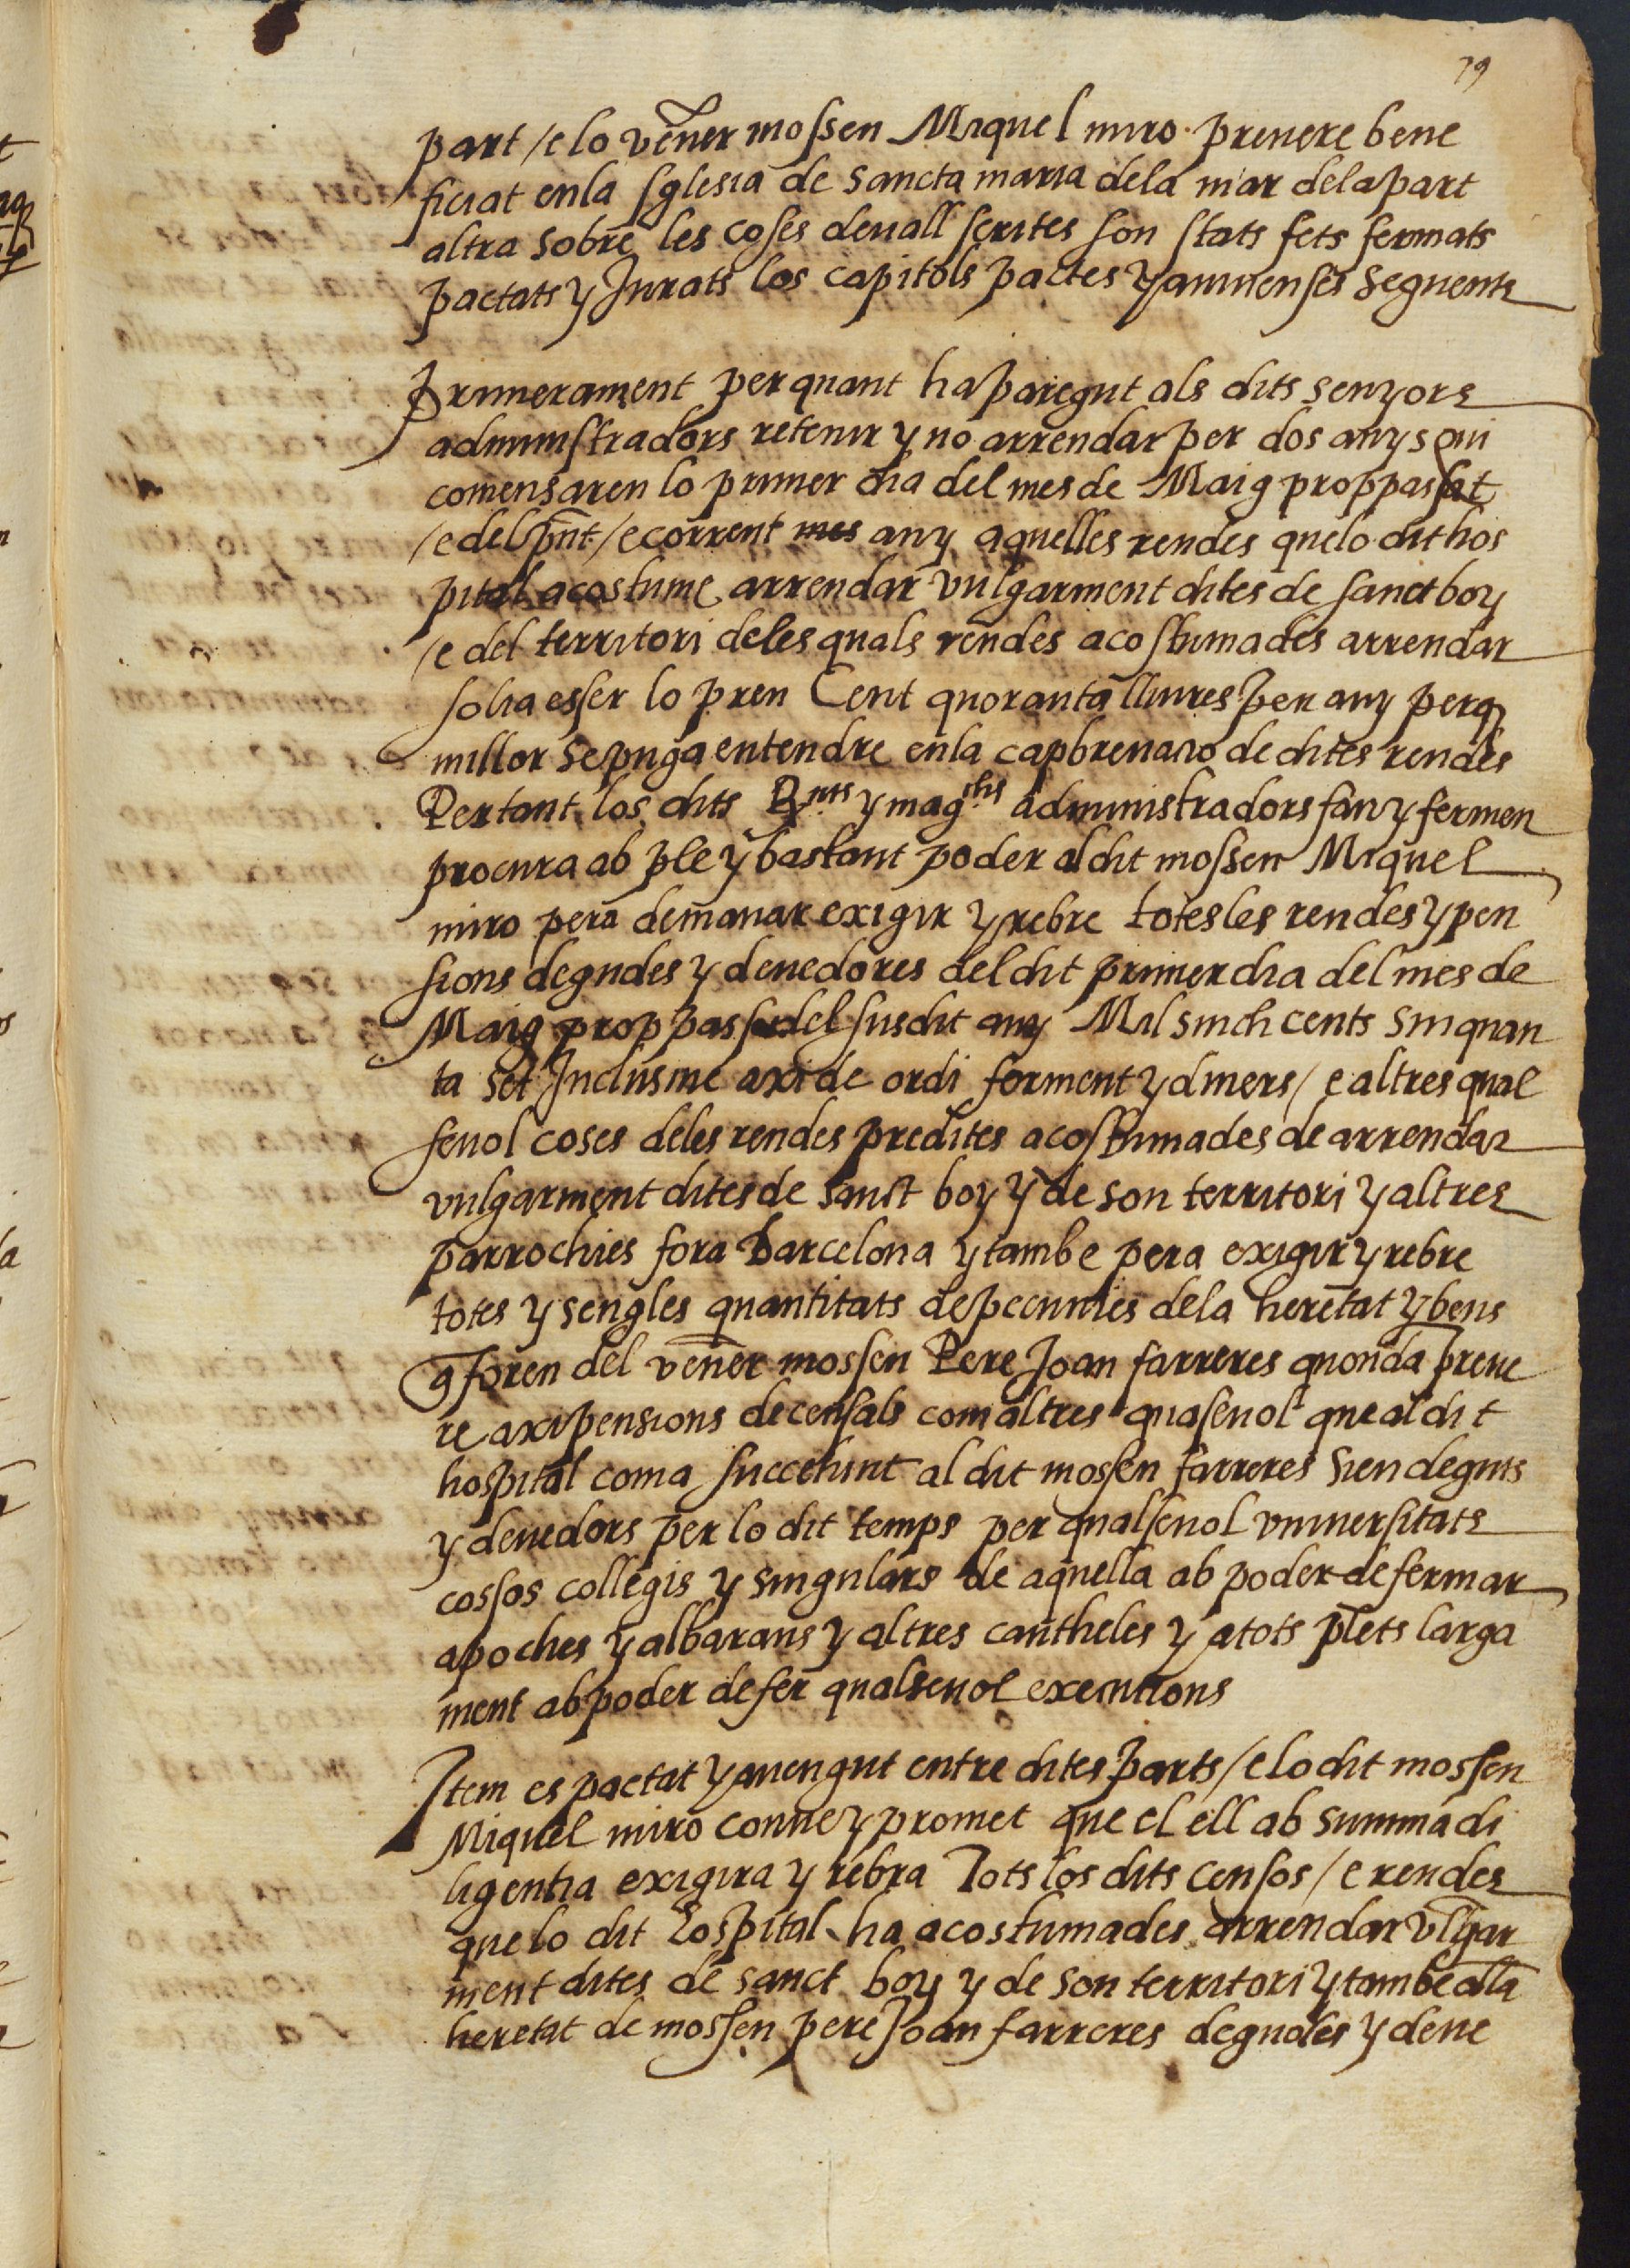 79
part /e lo vener mossen Miquel miro prevere bene
ficiat en la sglesia de sancta maria dela mar dela part
altra sobre les coses devall scrites son stats fets fermats
pactats y Jurats los capitols pactes y avinenses seguents
Primerament per quant ha paregut als dits senyors
administradors retenir y no arrendar per dos anys qui
comensaren lo primer dia del mes de Maig proppassat
/e del pnt /e corrent mes any aquelles rendes que lo dit hos
pital acostume arrendar vulgarment dites de sanct boy
/e del territori deles quals rendes acostumades arrendar
solia esser lo preu Cent quoranta lliures per any perq
millor se puga entendre en la capbrevacio de dites rendes
Per tant los dits Rnts y magchs administradors fan y fermen
procura ab ple y bastant poder al dit mossen Miquel
miro pera demanar exigir y rebre totes les rendes y pen
sions degudes y devedores del dit primer dia del mes de
Maig proppassat del susdit any Mil sinch cents sinquan
ta set Inclusive axi de ordi forment y diners /e altres qual
sevol coses deles rendes predites acostumades de arrendar
vulgarment dites de sanct boy y de son territori y altres
parrochies fora Barcelona y tambe pera exigir y rebre
totes y sengles quantitats de pecunies dela heretat y bens
q foren del vener mossen Pere Joan farreres quonda preve
re axi pensions de censals com altres quasevol que al dit
hospital com a succehint al dit mossen farreres sien deguts
y devedors per lo dit temps per qualsevol vniversitats
cossos collegis y singulars de aquella ab poder de fermar
apoches y albarans y altres cautheles y a tots plets larga
ment ab poder de fer qualsevol executions
Item es pactat y avengut entre dites parts /e lo dit mossen
Miquel miro conve y promet que el ell ab summa di
ligentia exigira y rebra Tots los dits censos /e rendes
que lo dit Hospital ha acostumades arrendar vlgar
ment dites de sanct boy y de son territori y tambe dla
heretat de mossen pere Joan farreres degudes y deve